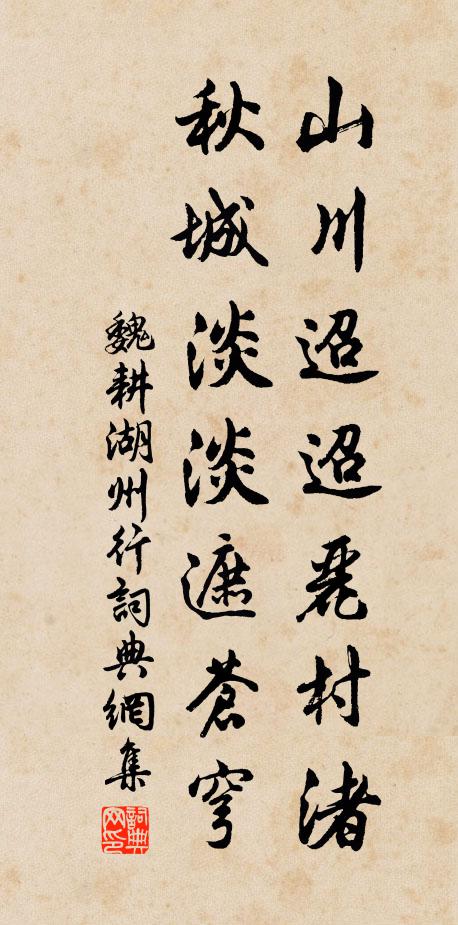 山川迢迢麗村渚
秋城淡淡遮蒼穹
魏耕湖州行詞典網集
詞典网印